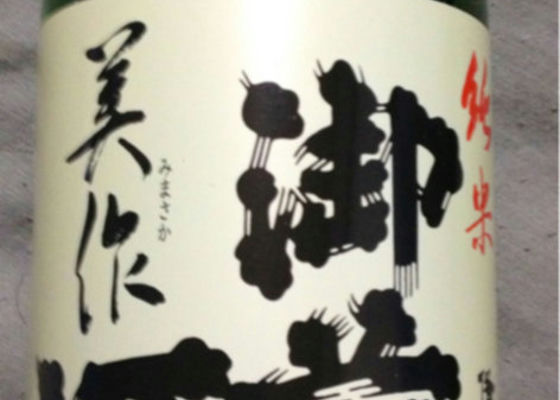 純米
御
美作
みまさか